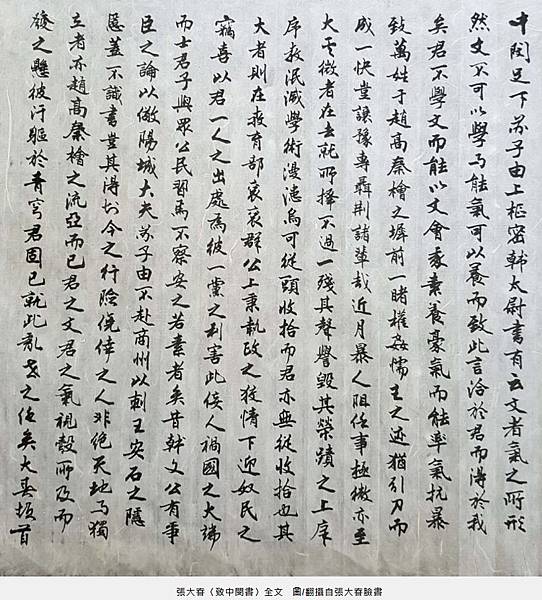 中閔足下苏子由上樞密韓太尉書有云文者氣之所形
然文不可以學而能氣可以養而致此言洽於君而得於我
矣君不學文而能以文會豪素養豪氣而能率氣抗暴
致萬姓于趙高秦檜之墀前一睹權姦懦主之迹猶引刀而
成一快豈讓豫專聶荊諸輩哉近月暴人阻任事極微亦至
大其微者在去就所擇不過一殘其聲譽毀其榮蹟之上庠
序教泯滅學術漫漶烏可從頭收拾而君亦無從收拾也其
大者則在教育部袞袞群公上秉執政之狡情下迎奴民之
竊喜以君一人之出處為彼一黨之利害此佞人禍國之大端
而士君子與眾公民習焉不察安之若素者矣昔韓文公有爭
臣之論以儆陽城大夫苏子由不赴商州以刺王安石之隱
慝蓋不識書豈其得於今之行險僥倖之人非絕天地而獨
立者亦趙高秦檜之流亞而已君之文君之氣視彀所及而
發之懸彼汙軀於青穹君固已就此亂世之任矣大春頓首
張大春〈致中閔書〉全文 圖/翻攝自張大春臉書